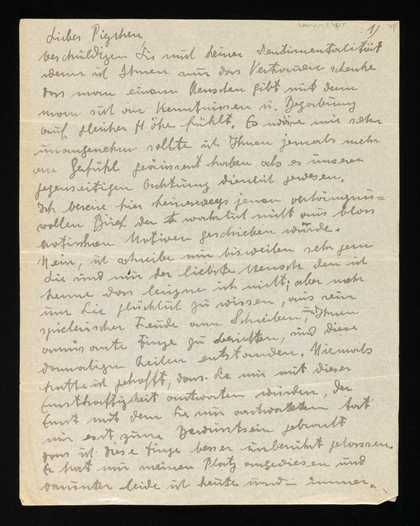 1)
Liebes Pigchen,
beschuldigen Sie mich keiner Sentimentalität
wenn ich Ihnen nur das Vertrauen schenke
das man einem Menschen gibt mit dem
man sich an Kenntnissen u. Begabung
auf gleicher Höhe fühlt. Es wäre mir sehr
unangenehm sollte ich Ihnen jemals mehr
an Gefühl geäussert haben als es unserer
gegenseitigen Achtung dienlich gewesen.
Ich bereue hier keineswegs jenen verhängnis=
vollen Brief der wahrlich nicht aus bloss
erotischen Motiven geschrieben wurde.
Nein, ich schreibe nur bisweilen sehr gern
Sie sind mir der liebste Mensch den ich
kenne das leugne ich nicht; aber nicht
um Sie glücklich zu wissen, aus rein
spielerischer Freude am Schreiben, Ihnen
amüsante Dinge zu berichten, sind diese
damaligen Zeilen entstanden. Niemals
hätte ich gehofft, dass Sie mir mit dieser
Ernsthaftigkeit antworten würden, der
Ernst mit dem Sie mir antworteten hat
mir erst zum Bewusstsein gebracht
dass ich diese Dinge besser unberührt gelassen.
Er hat mir meinen Platz angewiesen und
darunter leide ich heute und immer.